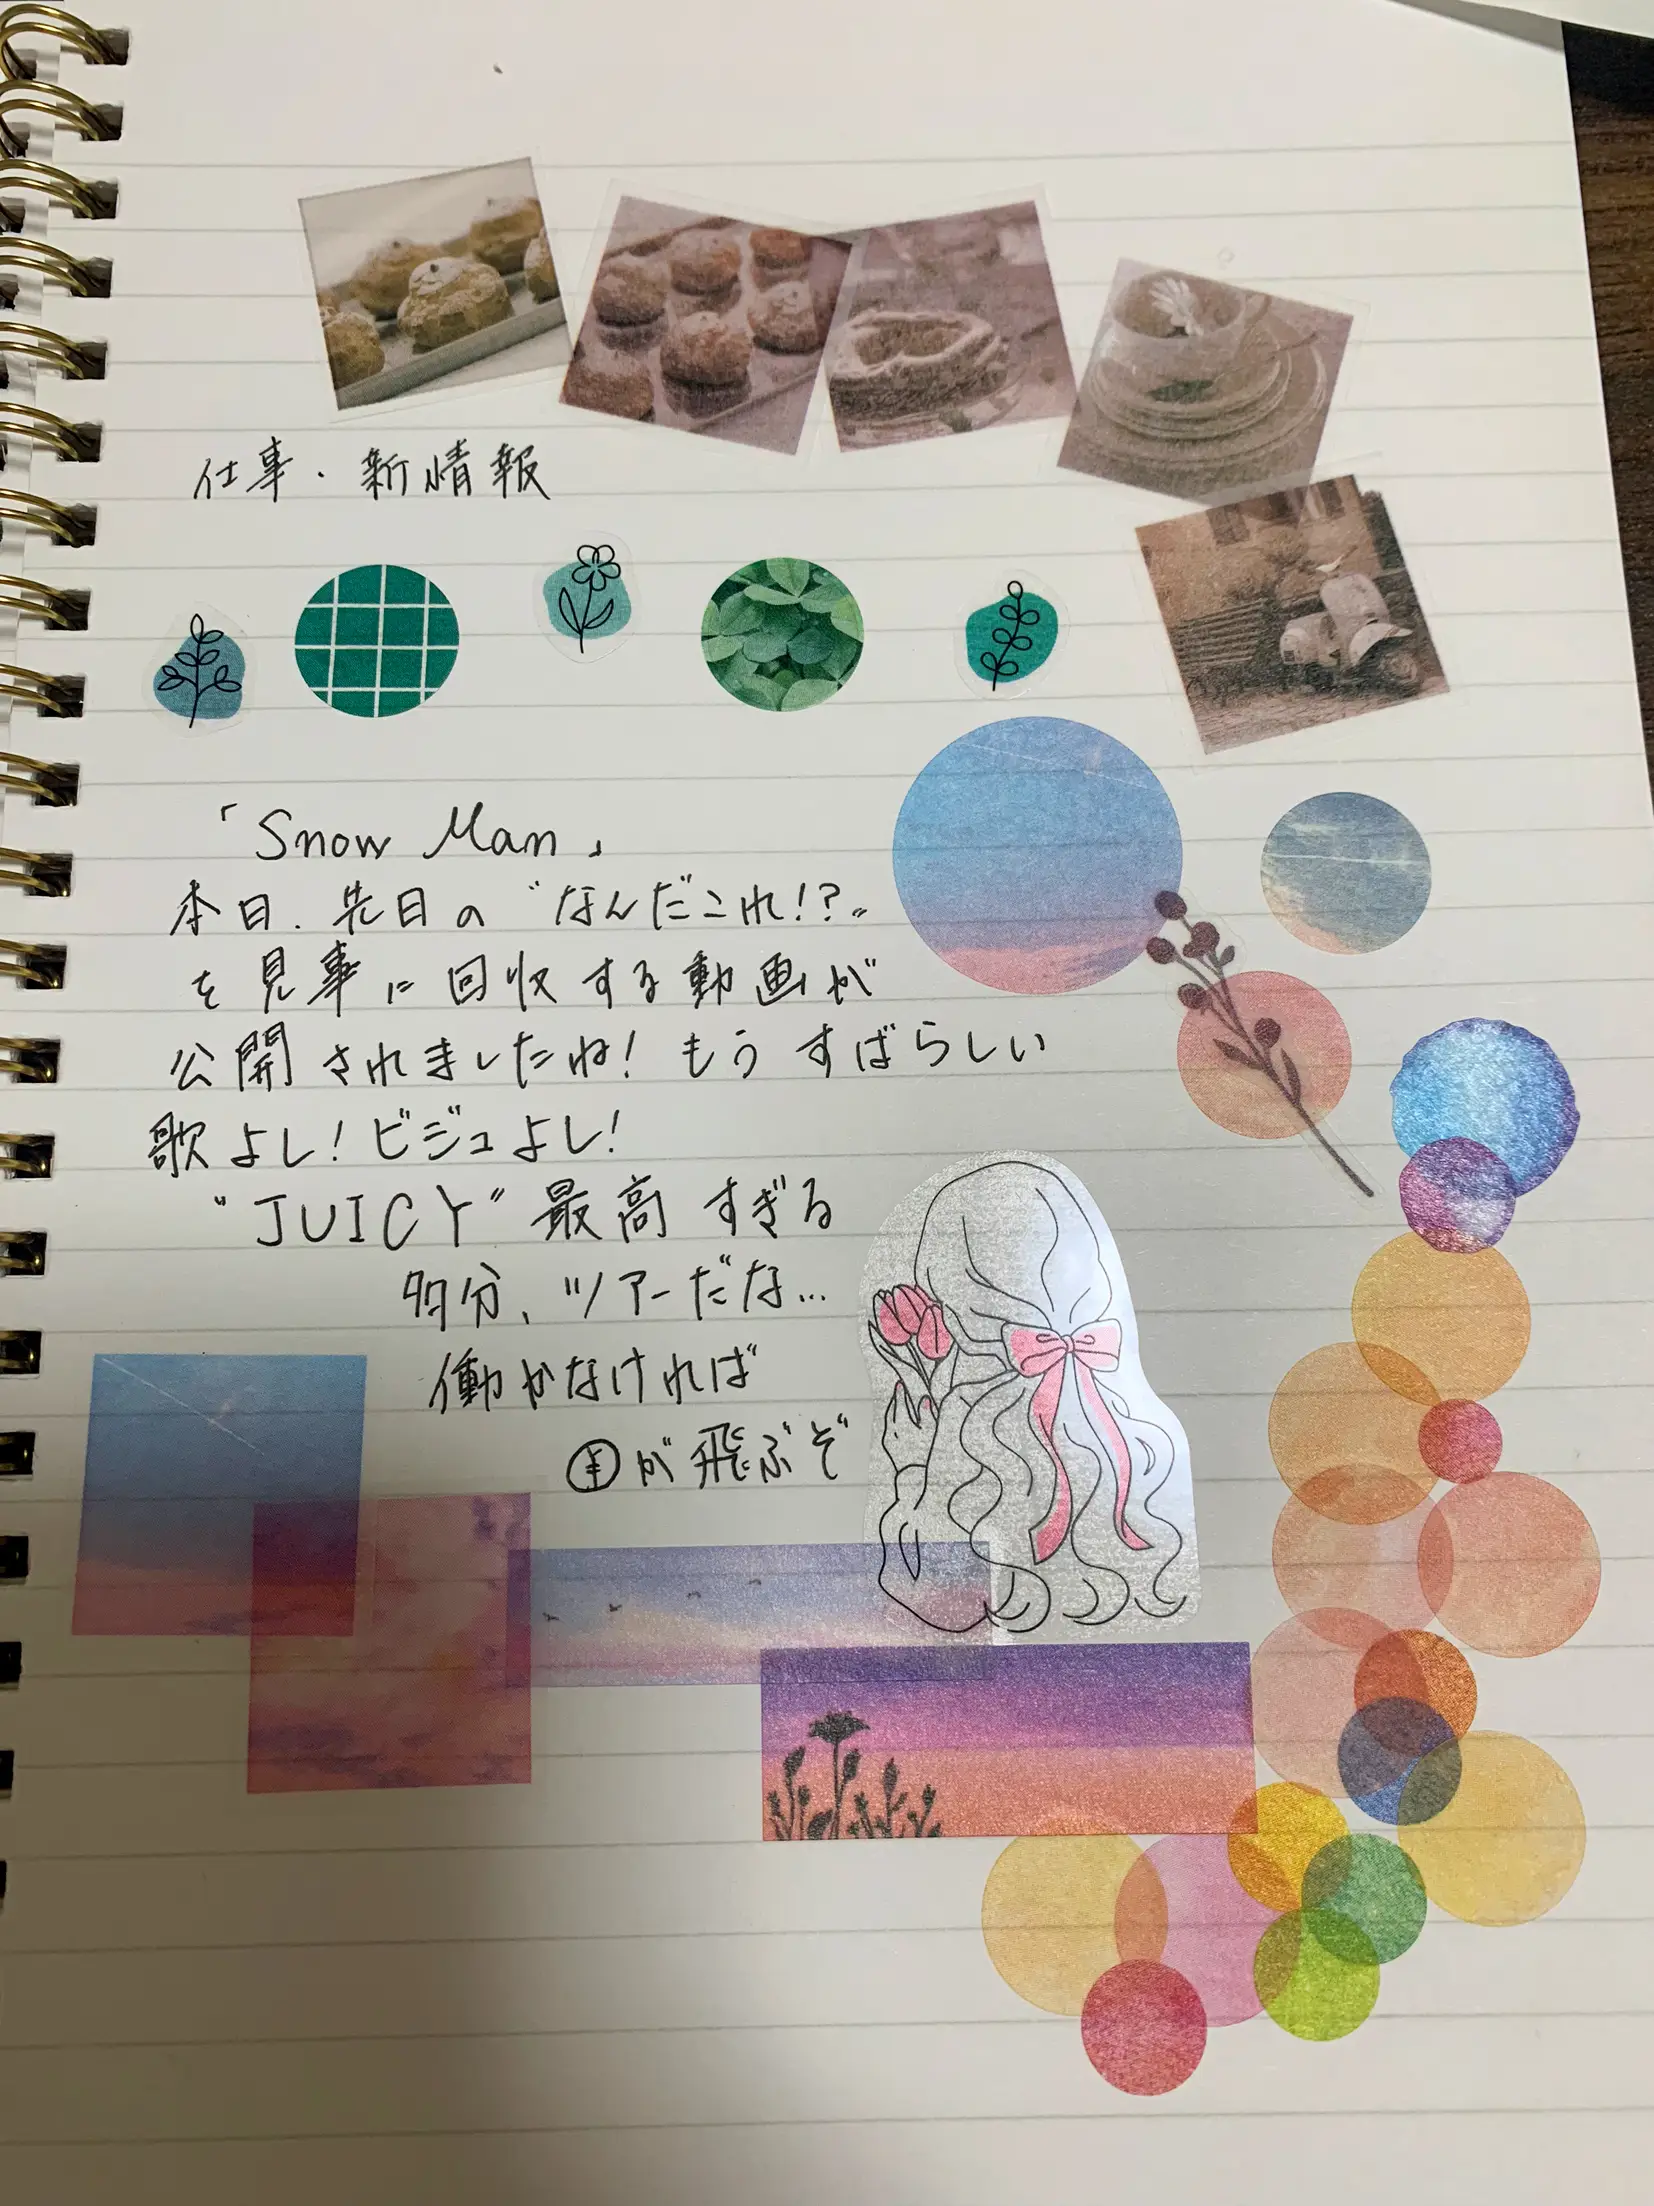 仕事・新情報
「Snow Man」
本日、先日の〝なんだこれ!?〟
を見事に回収する動画が
公開されましたね!もうすばらしい
歌よし!ビジュよし!
"JUICY"最高すぎる
多分、ツアーだな…
働かなければ
㊎が飛ぶぞ